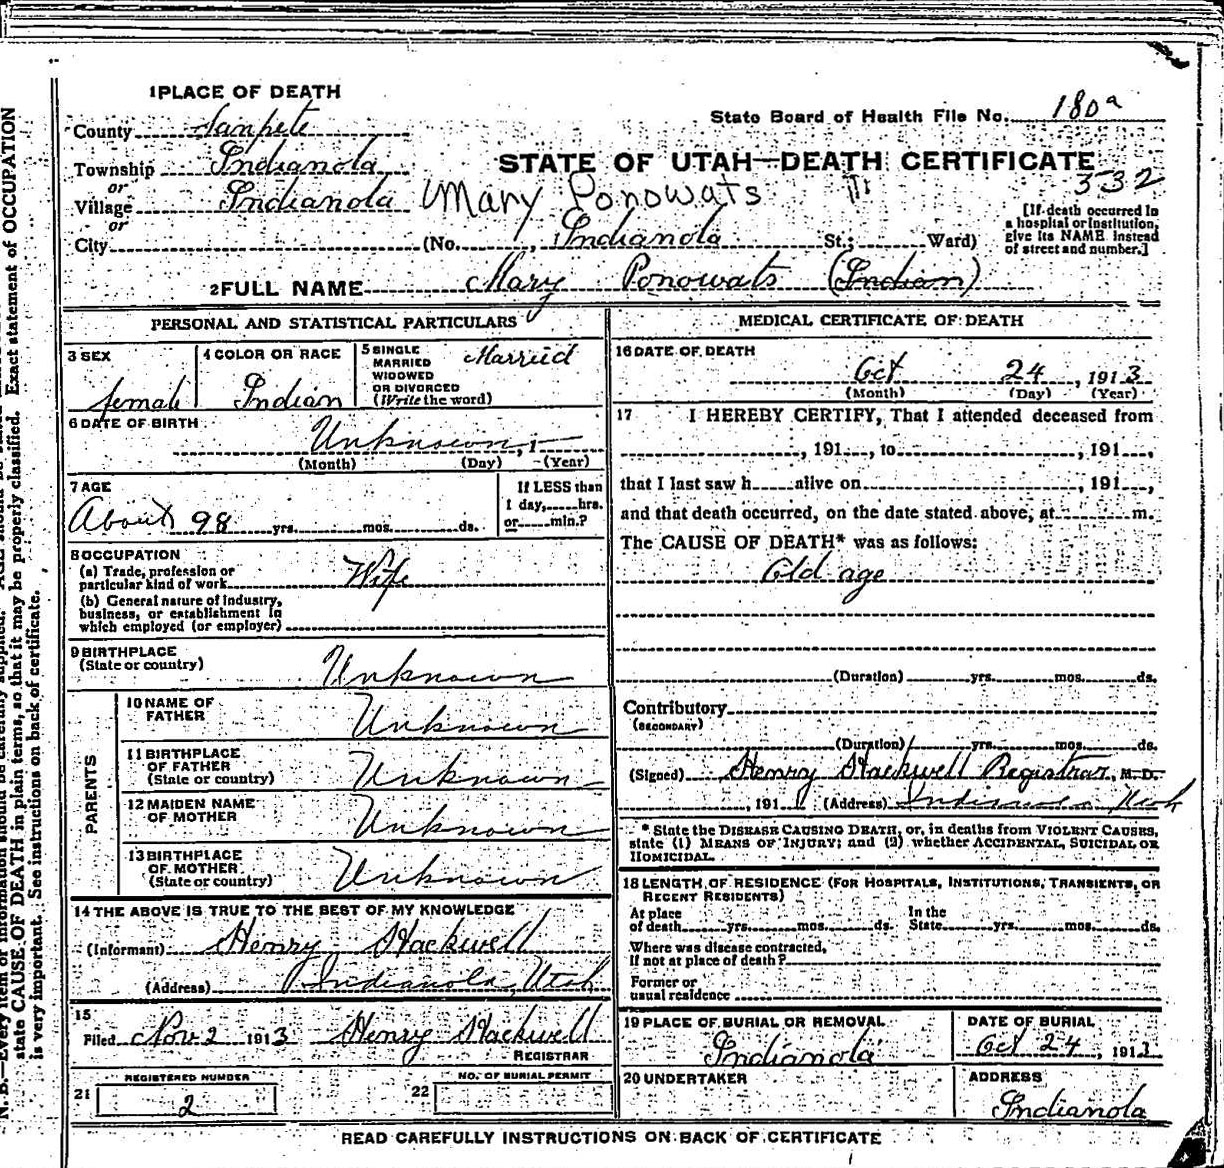 1 PLACE OF DEATH
County Sanpete
State Board of Health File No. 180a
Township Indianola
or
STATE OF UTAH—DEATH CERTIFICATE
532
Village Indianola
Mary Ponowats
or
City (No. , Indianola St.; Ward)
[If death occurred in
a hospital or institution,
give its NAME instead
of street and number.]
2 FULL NAME Mary Ponowats (Indian)
PERSONAL AND STATISTICAL PARTICULARS
3 SEX
female
4 COLOR OR RACE
Indian
5 SINGLE
MARRIED
WIDOWED
OR DIVORCED
(Write the word)
Married
6 DATE OF BIRTH
Unknown, 1
(Month) (Day) (Year)
7 AGE
About 98 yrs. mos. ds.
If LESS than
1 day, hrs.
or min.?
8 OCCUPATION
(a) Trade, profession or
particular kind of work Wife
(b) General nature of industry,
business, or establishment in
which employed (or employer)
9 BIRTHPLACE
(State or country)
Unknown
PARENTS
10 NAME OF
FATHER
Unknown
11 BIRTHPLACE
OF FATHER
(State or country)
Unknown
12 MAIDEN NAME
OF MOTHER
Unknown
13 BIRTHPLACE
OF MOTHER
(State or country)
Unknown
14 THE ABOVE IS TRUE TO THE BEST OF MY KNOWLEDGE
(Informant) Henry Hackwell
(Address) Indianola, Utah
15
Filed Nov 2 1913 Henry Hackwell
REGISTRAR
REGISTERED NUMBER
21 2
NO. OF BURIAL PERMIT
22
MEDICAL CERTIFICATE OF DEATH
16 DATE OF DEATH
Oct 24, 1913
(Month) (Day) (Year)
17 I HEREBY CERTIFY, That I attended deceased from
, 191 , to , 191 ,
that I last saw h alive on , 191 ,
and that death occurred, on the date stated above, at m.
The CAUSE OF DEATH* was as follows:
Old age
(Duration) yrs. mos. ds.
Contributory
(SECONDARY)
(Duration) yrs. mos. ds.
(Signed) Henry Hackwell Registrar, M. D.
, 191 (Address) Indianola Utah
* State the DISEASE CAUSING DEATH, or, in deaths from VIOLENT CAUSES,
state (1) MEANS OF INJURY; and (2) whether ACCIDENTAL, SUICIDAL OR
HOMICIDAL.
18 LENGTH OF RESIDENCE (FOR HOSPITALS, INSTITUTIONS, TRANSIENTS, OR
RECENT RESIDENTS)
At place
of death yrs. mos. ds.
In the
State yrs. mos. ds.
Where was disease contracted,
If not at place of death?
Former or
usual residence
19 PLACE OF BURIAL OR REMOVAL
Indianola
DATE OF BURIAL
Oct 24, 1913
20 UNDERTAKER
ADDRESS
Indianola
READ CAREFULLY INSTRUCTIONS ON BACK OF CERTIFICATE
state CAUSE OF DEATH in plain terms, so that it may be properly classified. Exact statement of OCCUPATION
is very important. See instructions on back of certificate.